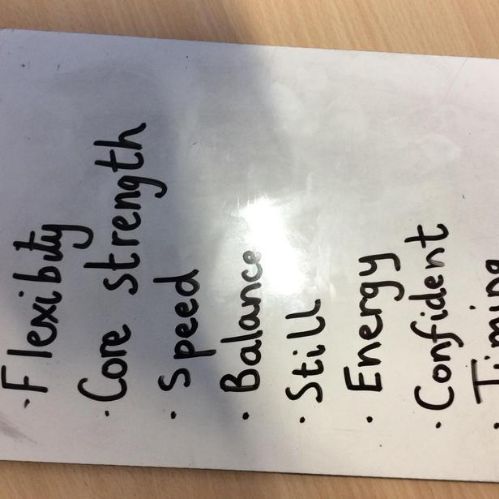 ·Flexibity
·Core strength
·Speed
·Balance
·Still
·Energy
·Confident
·Timing